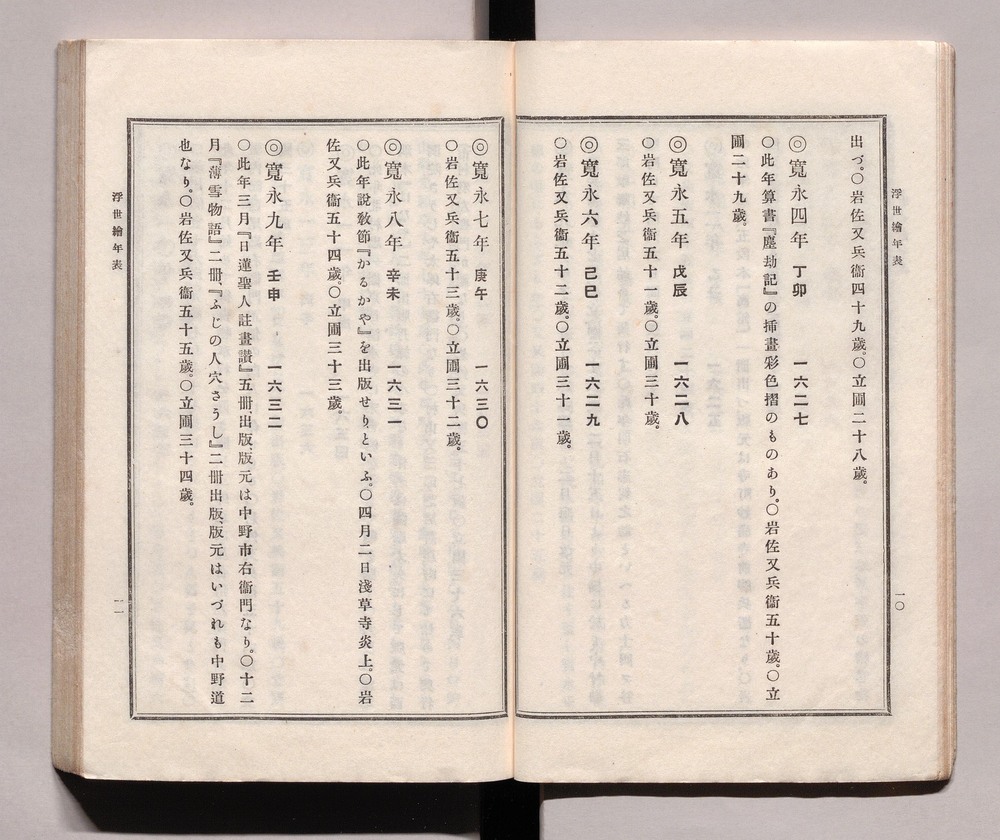 浮世繪年表
一〇
出づ。〇岩佐又兵衞四十九歲。〇立圃二十八歲。
◎寬永四年 丁卯 一六二七
〇此年算書『塵劫記』の揷畫彩色摺のものあり。〇岩佐又兵衞五十歲。〇立
圃二十九歲。
◎寬永五年 戊辰 一六二八
〇岩佐又兵衞五十一歲。〇立圃三十歲。
◎寬永六年 己巳 一六二九
〇岩佐又兵衞五十二歲。〇立圃三十一歲。
◎寬永七年 庚午 一六三〇
〇岩佐又兵衞五十三歲。〇立圃三十二歲。
◎寬永八年 辛未 一六三一
〇此年說敎節『かるかや』を出版せりといふ。〇四月二日淺草寺炎上。〇岩
佐又兵衞五十四歲。〇立圃三十三歲。
◎寬永九年 壬申 一六三二
〇此年三月『日蓮聖人註畫讃』五冊出版、版元は中野市右衞門なり。〇十二
月『薄雪物語』二冊、『ふじの人穴さうし』二冊出版、版元はいづれも中野道
也なり。〇岩佐又兵衞五十五歲。〇立圃三十四歲。
浮世繪年表
一一